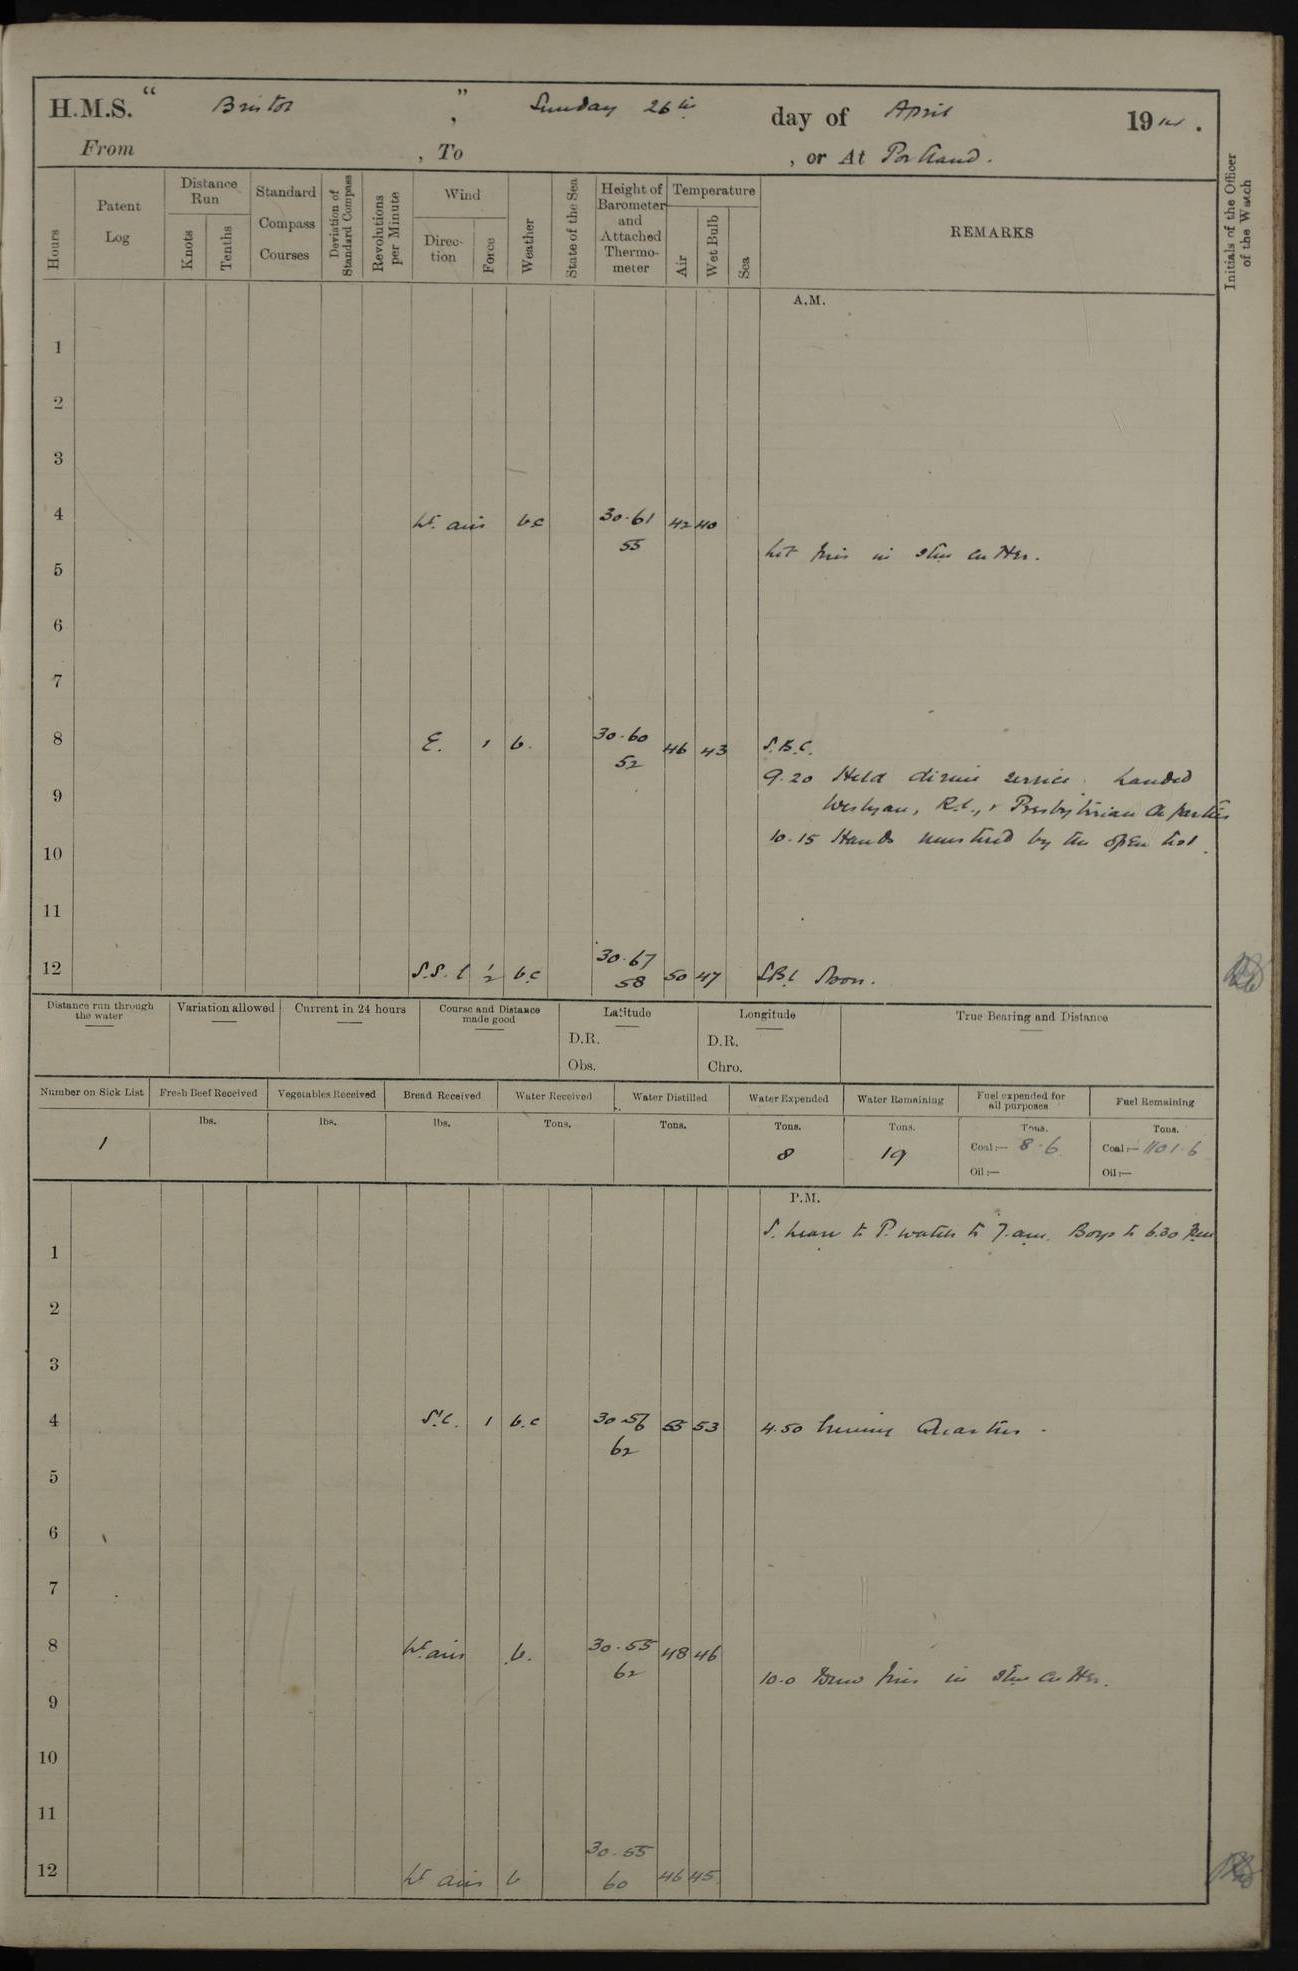 H.M.S. “ Bristol ” , Sunday 26th day of April 1914 .
From , To , or At Portland .
Hours
Patent Log
Distance Run
Knots
Tenths
Standard Compass Courses
Deviation of Standard Compass
Revolutions per Minute
Wind
Direc- tion
Force
Weather
State of the Sea
Height of Barometer and Attached Thermo- meter
Temperature
Air
Wet Bulb
Sea
REMARKS
Initials of the Officer of the Watch
A.M.
1
2
3
4 Lt airs b.c 30.61 42 40
55
Lit fires in stm cutter.
5
6
7
8 E. 1 b. 30.60 46 43 S.B.C.
52
9.20 Held divine service. Landed
9
Weslyan, R.C., & Presbyterian Ch parties
10.15 Hands mustered by the open list.
10
11
12 S.S.E ½ b.c 30.67 50 47 S.B.C Noon.
58
Distance run through the water
Variation allowed
Current in 24 hours
Course and Distance made good
Latitude
D.R.
Obs.
Longitude
D.R.
Chro.
True Bearing and Distance
Number on Sick List
Fresh Beef Received
Vegetables Received
Bread Received
Water Received
Water Distilled
Water Expended
Water Remaining
Fuel expended for all purposes
Fuel Remaining
lbs. lbs. lbs. Tons. Tons. Tons. Tons. Tons. Tons.
1 8 19 Coal:— 8.6 Coal:— 1101.6
Oil:— Oil:—
P.M.
S. leave to P. watch to 7. am. Boys to 6.30 pm
1
2
3
4 S'E. 1 b.c 30.56 55 53 4.50 Evening Quarters.
62
5
6
7
8 Lt airs b. 30.55 48 46
62
10.0 Drew fires in stm cutter.
9
10
11
12 Lt airs b 30.55 46 45
60